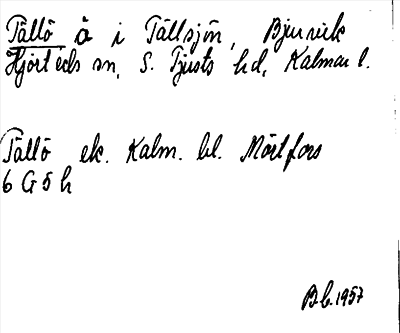 Tällö å i Tällsjön, Bjurvik
Hjorteds sn, S. Tjusts hd, Kalmar l.
Tällö ek. Kalm. bl. Mörtfors
6 G 5 h
Bb. 1957